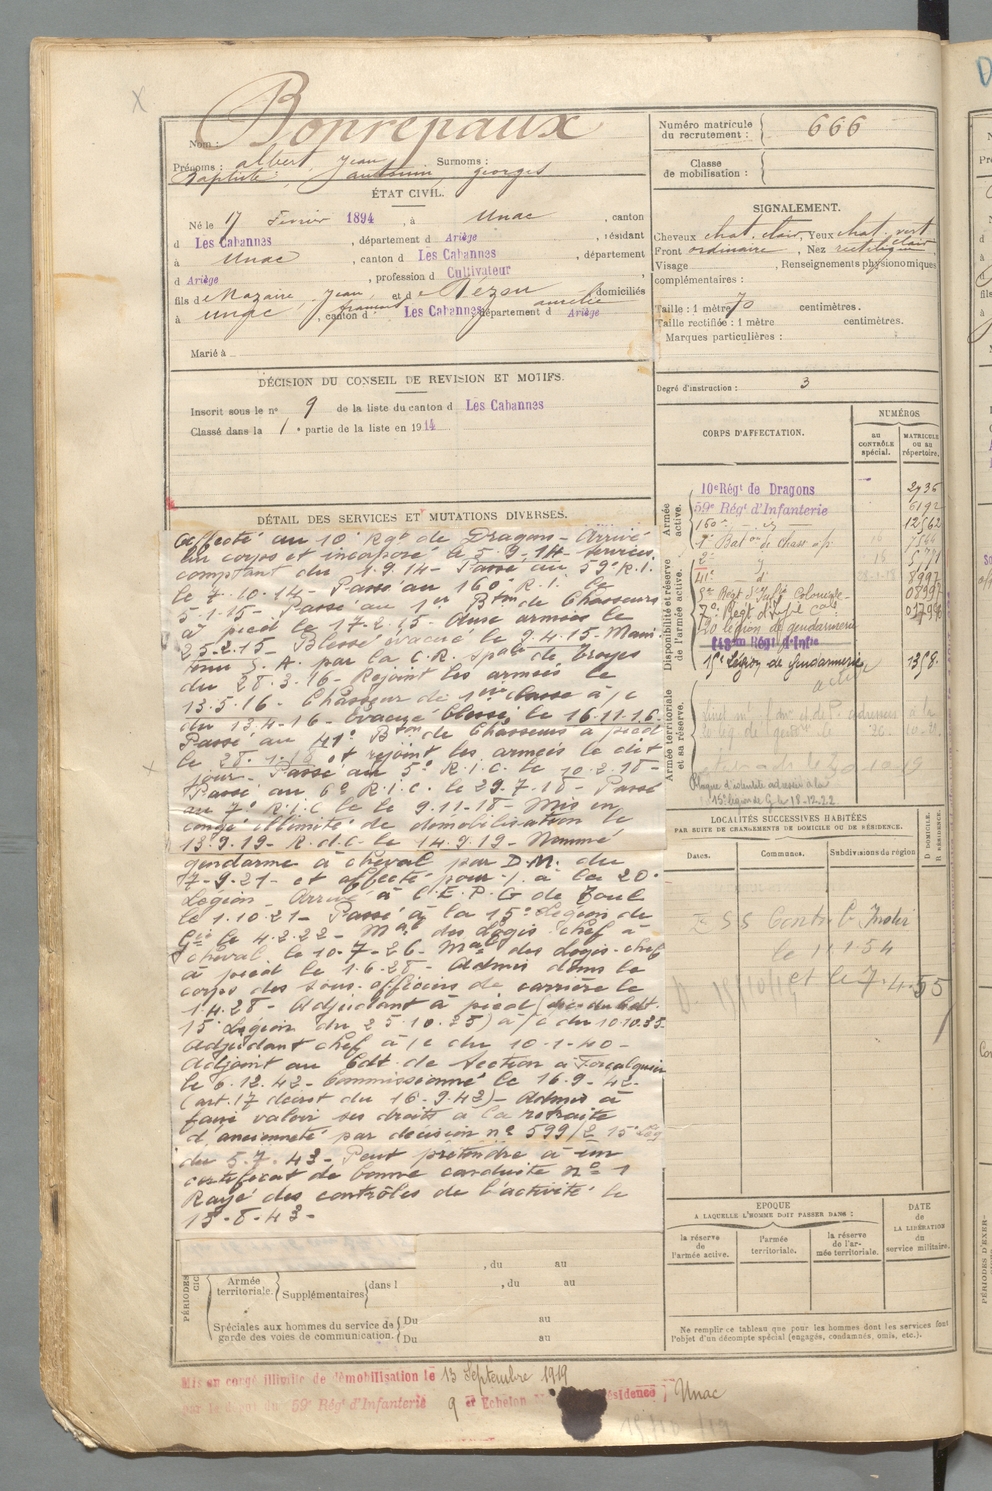 Nom : Bonrepaux
Prénoms : albert jean Surnoms :
Baptiste, antonin georges
ÉTAT CIVIL.
Né le 17 Février 1894, à Unac, canton
d Les Cabannes, département d Ariège, résidant
à Unac, canton d Les Cabannes, département
d Ariège, profession d Cultivateur
fils de Nazaire, Jean françois et d aurélie domiciliés
à Unac, canton d Les Cabannes, département d Ariège
Marié à
DÉCISION DU CONSEIL DE REVISION ET MOTIFS.
Inscrit sous le nº 9 de la liste du canton d Les Cabannes
Classé dans la 1e partie de la liste en 1914
DÉTAIL DES SERVICES ET MUTATIONS DIVERSES.
Affecté au 10e Rgt de Dragons - Arrivé
au corps et incorporé le 5.9.14 - services
comptant du 1.9.14 - Passé au 59e R.I.
le 7.10.14 - Passé au 160e R.I. le
5.1.15 - Passé au 1er Bton de Chasseurs
à pied le 17.2.15. Aux armées le
25.2.15 - Blessé évacué le 9.4.15. Main
tenu S.A. par la C.R. Spale de Troyes
du 28.3.16 - Rejoint les armées le
13.5.16 - Chasseur de 1ère classe à/c
du 13.4.16 - Evacué blessé le 16.11.16.
Passé au 41e Bton de Chasseurs à pied
le 28.1.18 et rejoint les armées le dit
jour - Passé au 5e R.I.C. le 10.2.18 -
Passé au 6e R.I.C. le 29.7.18 - Passé
au 7e R.I.C le le 9.11.18 - Mis en
congé illimité de démobilisation le
13.9.19 - R.d.C. le 14.9.19 - Nommé
gendarme à cheval par D.M. du
7.9.21 - et affecté pour à la 20e
Légion - Arrivé à C.E.P.G de Toul
le 1.10.21 - Passé à la 15e Légion de
Gie le 4.2.22 - Mal des Logis chef à
cheval le 10.7.26 - Mal des Logis-chef
à pied le 1.6.28 - Admis dans le
corps des sous-officiers de carrière le
1.4.28 - Adjudant à pied (déc. du Cdt.
15e Légion du 25.10.35) à/c du 10.10.35.
Adjudant chef à/c du 10-1-40 -
Adjoint au Cdt. de Section à Forcalquier
le 6.12.42 - Commissionné le 16.9.42
(art. 17 décret du 16.9.42) - Admis à
faire valoir ses droits à la retraite
d'ancienneté par décision nº 599/2 15e Leg
du 5.7.43 - Peut prétendre à un
certificat de bonne conduite nº 1
Rayé des contrôles de l'activité le
15-8-43 -
PÉRIODES
, du au
Armée territoriale. Supplémentaires dans l , du au
Spéciales aux hommes du service de garde des voies de communication. Du au
Du au
Mis en congé illimité de démobilisation le 13 Septembre 1919
par le dépôt du 59e Régt d'Infanterie 9 er Echelon résidence Unac
Numéro matricule du recrutement : 666
Classe de mobilisation :
SIGNALEMENT.
Cheveux chat. clair, Yeux chat. vert clair
Front ordinaire, Nez rectiligne
Visage , Renseignements physionomiques
complémentaires :
Taille : 1 mètre 70 centimètres.
Taille rectifiée : 1 mètre centimètres.
Marques particulières :
Degré d'instruction : 3
CORPS D'AFFECTATION.
NUMÉROS
au CONTRÔLE spécial.
MATRICULE ou au répertoire.
Armée active.
Disponibilité et réserve de l'armée active.
Armée territoriale et sa réserve.
10e Régt de Dragons
59e Régt d'Infanterie 6192
160e 12562
1er Baton de chass. à p.
2e 18 5791
41e d 8997
5e Régt d'Infie Coloniale
7e Régt d'Infie Cale
20 légion de gendarmerie
15e Légion de Gendarmerie active
Plaque d'identité adressée à la
15e légion de G. le 18-12-22
LOCALITÉS SUCCESSIVES HABITÉES
PAR SUITE DE CHANGEMENTS DE DOMICILE OU DE RÉSIDENCE.
Dates. Communes. Subdivisions de région
D. DOMICILE. R. RÉSIDENCE.
ESS Contr
le 1 1.54
et le 7.4.55
EPOQUE
A LAQUELLE L'HOMME DOIT PASSER DANS :
la réserve de l'armée active.
l'armée territoriale.
la réserve de l'armée territoriale.
DATE de LA LIBÉRATION du service militaire.
Ne remplir ce tableau que pour les hommes dont les services font
l'objet d'un décompte spécial (engagés, condamnés, omis, etc.).